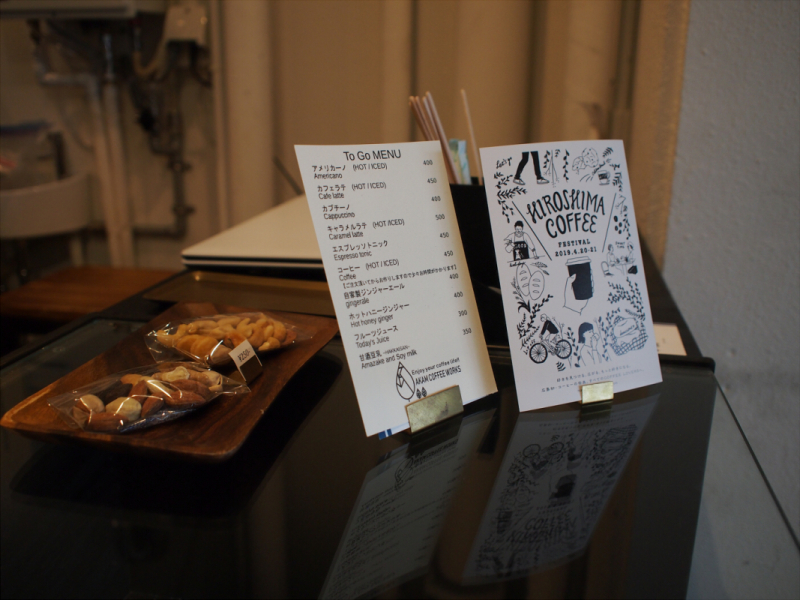 To Go MENU
アメリカーノ (HOT / ICED) 400
Americano
カフェラテ (HOT / ICED) 450
Cafe latte
カプチーノ 400
Cappuccino
キャラメルラテ (HOT /ICED) 500
Caramel latte
エスプレッソトニック 450
Espresso tonic
コーヒー (HOT / ICED) 450
Coffee
自家製ジンジャーエール 400
gingerale
ホットハニージンジャー 400
Hot honey ginger
フルーツジュース 300
Today's Juice
甘酒豆乳 350
Amazake and Soy milk
Enjoy your coffee life!!
AKAM COFFEE WORKS
¥250-
Let's
HIROSHIMA
COFFEE
FESTIVAL
2019.4.20-21